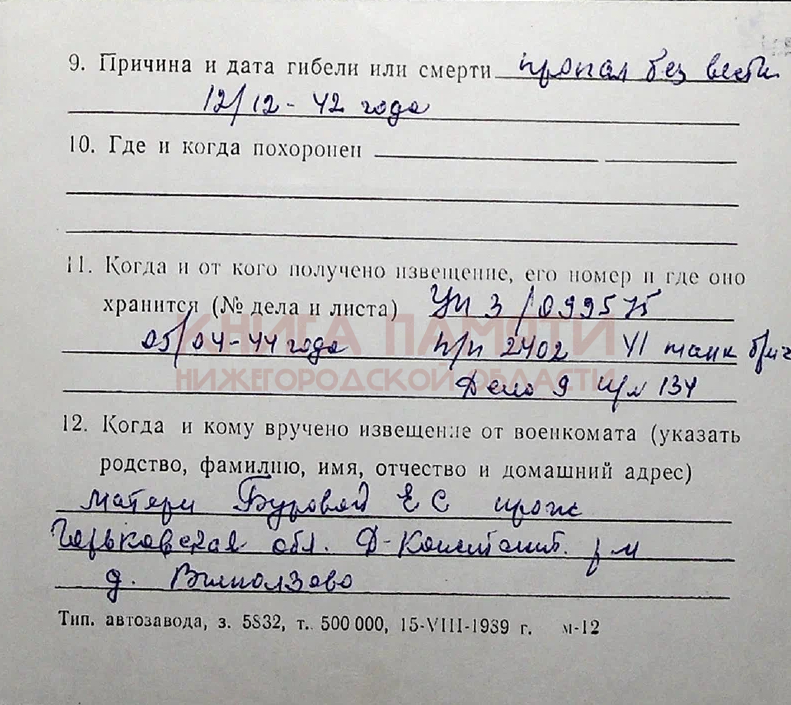 9. Причина и дата гибели или смерти пропал без вести
12/12-42 года
10. Где и когда похоронен
11. Когда и от кого получено извещение, его номер и где оно
хранится (№ дела и листа) 3/099575
05/04-44 года п/п 2402 41 танк бриг
Дело 9 134
КНИГА ПАМЯТИ
НИЖЕГОРОДСКОЙ ОБЛАСТИ
12. Когда и кому вручено извещение от военкомата (указать
родство, фамилию, имя, отчество и домашний адрес)
матери Буровой Е С прож
Горьковская обл. Д-Констант. р-н
д.
Тип. автозавода, з. 5832, т. 500 000, 15-VIII-1989 г. м-12